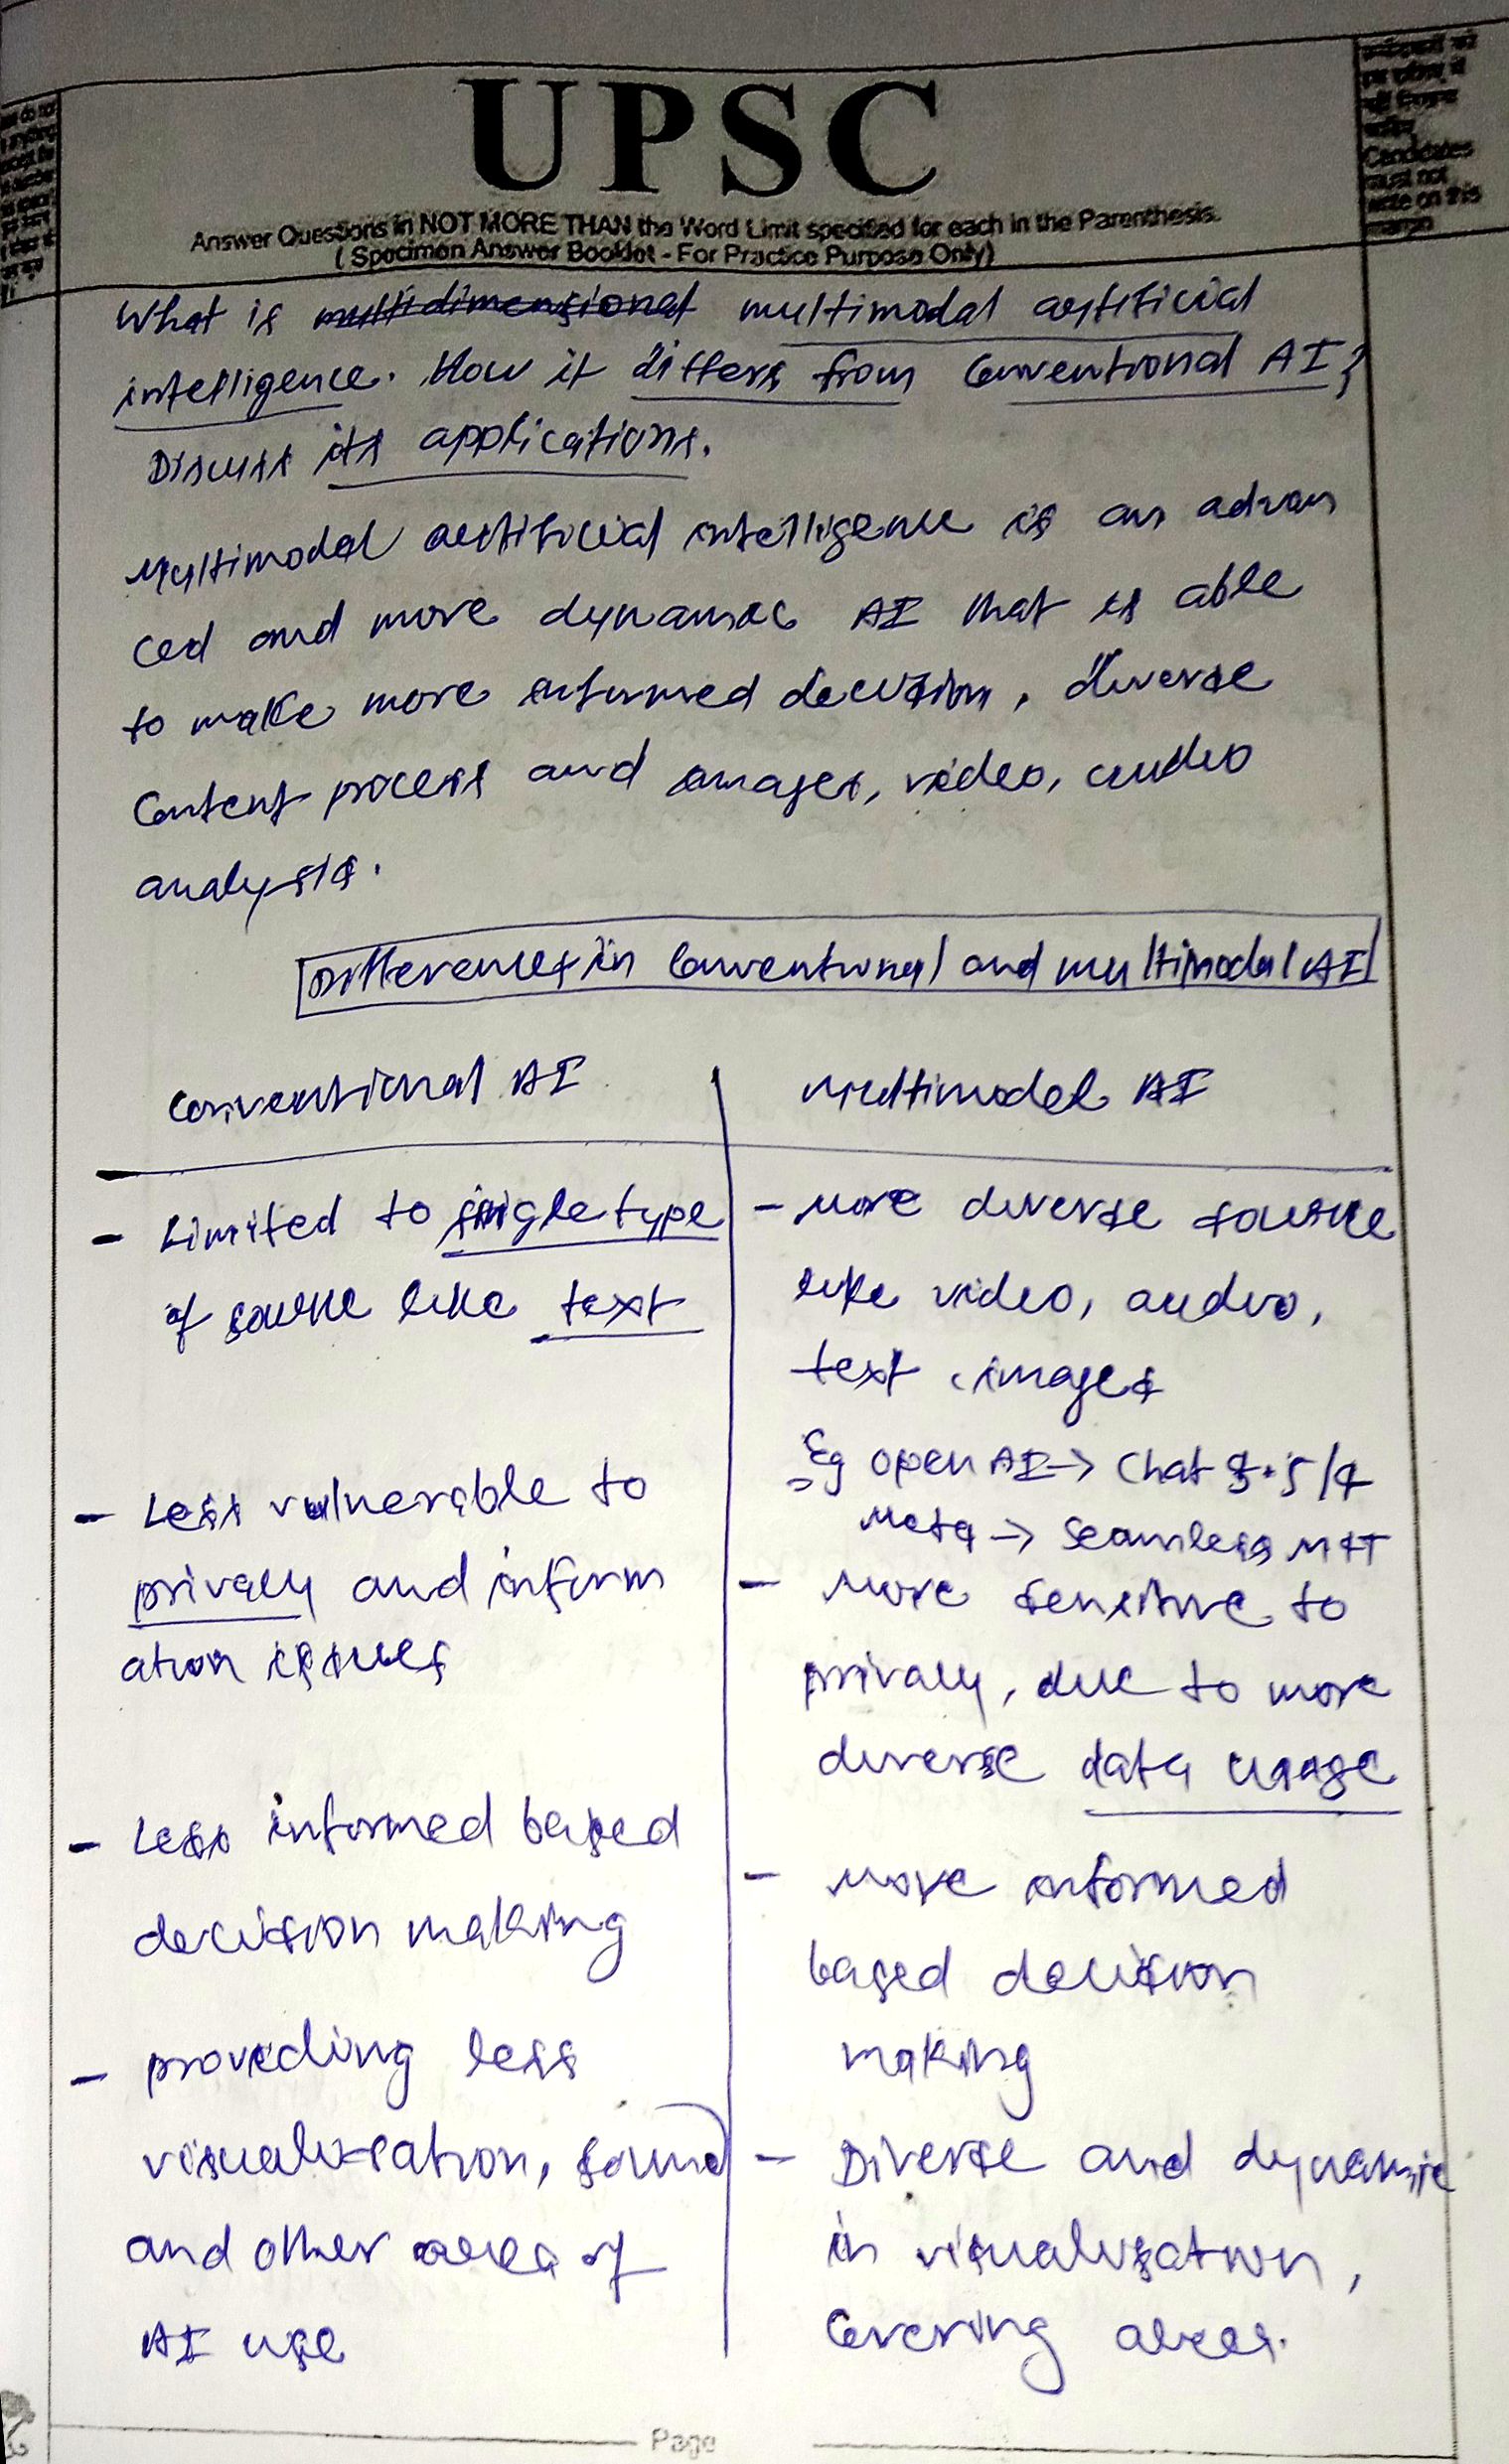 UPSC
Answer Questions in NOT MORE THAN the Word Limit specified for each in the Parenthesis.
( Specimen Answer Booklet - For Practice Purpose Only)
Candidates
must not
write on this
margin
What is multidimensional multimodal artificial
intelligence. How it differs from Conventional AI?
Discuss its applications.
Multimodal artificial intelligence is an advan
ced and more dynamic AI that is able
to make more informed decision, diverse
Content process and images, video, audio
analysis.
Differences in Conventional and multimodal AI
Conventional AI
- Limited to single type
of source like text
- Less vulnerable to
privacy and inform
ation issues
- Less informed based
decision making
- providing less
visualization, sound
and other area of
AI use
Multimodal AI
- More diverse source
like video, audio,
text, images
Eg open AI → Chat 3.5/4
Meta → Seamless M4T
- More sensitive to
privacy, due to more
diverse data usage
- More informed
based decision
making
- Diverse and dynamic
in visualization,
Covering areas.
Page